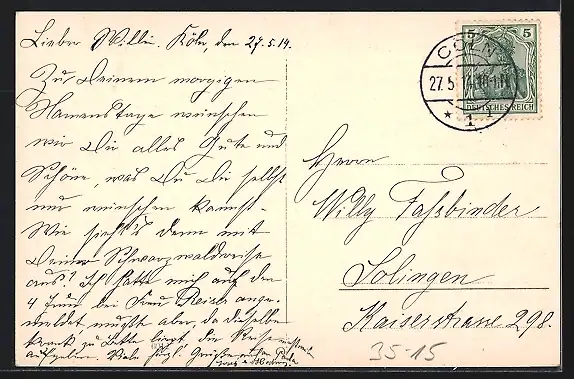 Lieber Willi. Köln, den 27.5.14.
Zu Deinem morgigen
Namenstage wünschen
wir Dir alles Gute und
Schöne, was Du Dir selbst
nur wünschen kannst.
Wie sieht's denn mit
Deiner Schwarzwaldreise
aus? Ich hatte mich auf den
4 Juni bei Frau Reiser ange-
meldet mußte aber, da dieselbe
krank zu Bette liegt die Reise
aufgeben. Viele herzl. Grüße
CÖLN
27.5.14.
* 1
5 5
DEUTSCHES REICH
Herrn
Willy Fassbinder
Solingen
Kaiserstrasse 298.
35-15